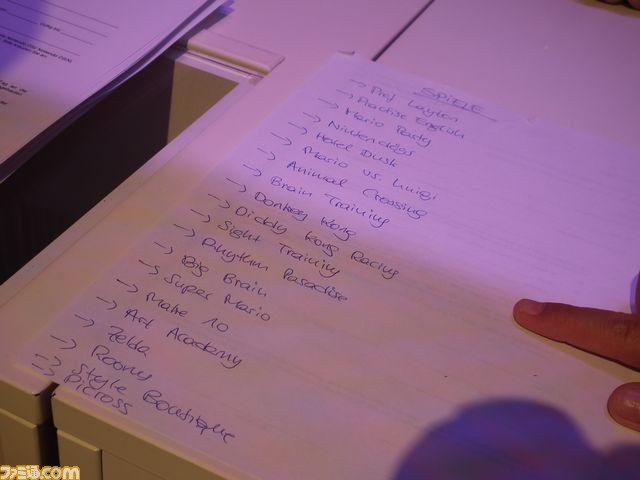 SPIELE
→ Prof Layton
→ Practise English
→ Mario Party
→ Nintendogs
→ Hotel Dusk
→ Mario vs. Luigi
→ Animal Crossing
→ Brain Training
→ Donkey Kong
→ Diddy Kong Racing
→ Sight Training
→ Rhythm Paradise
→ Big Brain
→ Super Mario
→ Mahe 10
→ Art Academy
→ Zelda
→ Rooms
→ Style Boutique
→ Picross
ファミ通.com